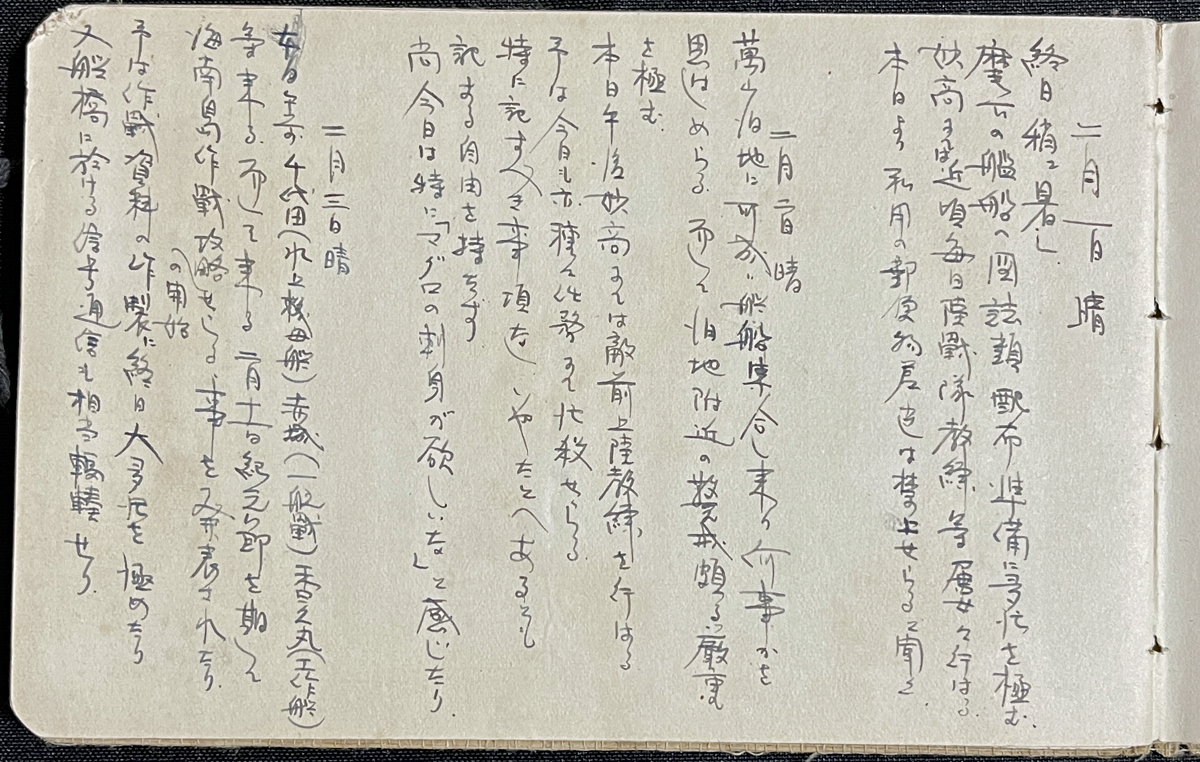 二月一日 晴
終日稍々暑し
麾下の艦船へ図誌類配布準備に多忙を極む.
妙高では近頃毎日陸戦隊教練等屡々行はる.
本日より私用の郵便物差出は禁止せらると聞く
二月二日 晴
萬山泊地に可成艦船集合し来り何事かを
思はしめらる 而して泊地附近の警戒頗る厳重
を極む.
本日午后妙高にては敵前上陸教練を行はる
予は今日も亦種々任務にて忙殺せらる
特に記すべき事項なし いやたとへあるとも
記する自由を持たず
尚今日は特に「マグロの刺身が欲しいな」と感じたり.
二月三日 晴
本日午前千代田(水上機母艦)赤城(一航戦)香久丸(工作船)
等来る 而して来る二月十一日紀元節を期して
海南島作戦攻略の開始せらるゝ事を発表されたり.
予は作戦資料の作製に終日大多忙を極めたり
又艦橋に於ける信号通信も相当輻輳せり.